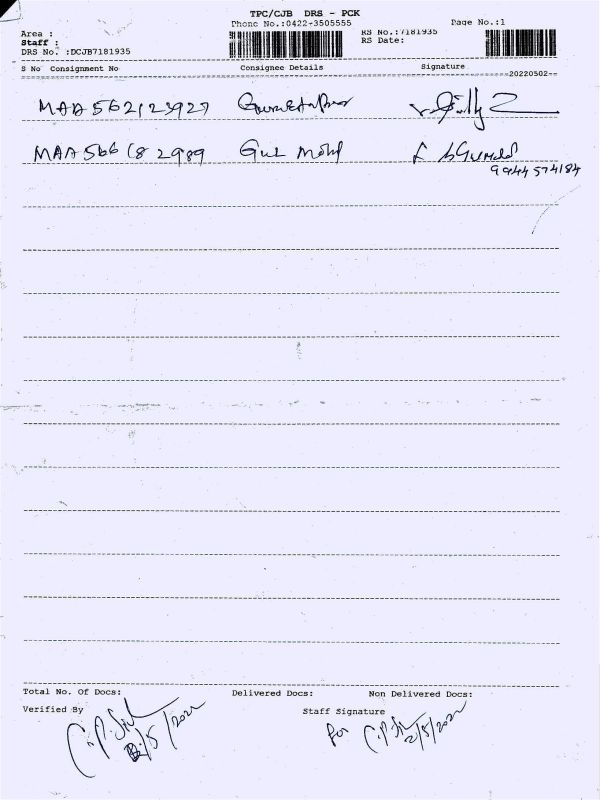 TPC/CJB DRS - PCK
Phone No.:0422-3505555 Page No.:1
Area : RS No.:7181935
Staff : RS Date:
DRS No. :DCJB7181935
S No Consignment No Consignee Details Signature
20220502
MAA562123927
MAA566182989 Gul Mohd
9944574184
Total No. Of Docs: Delivered Docs: Non Delivered Docs:
Verified By Staff Signature
2/5/2022 for 2/5/2022